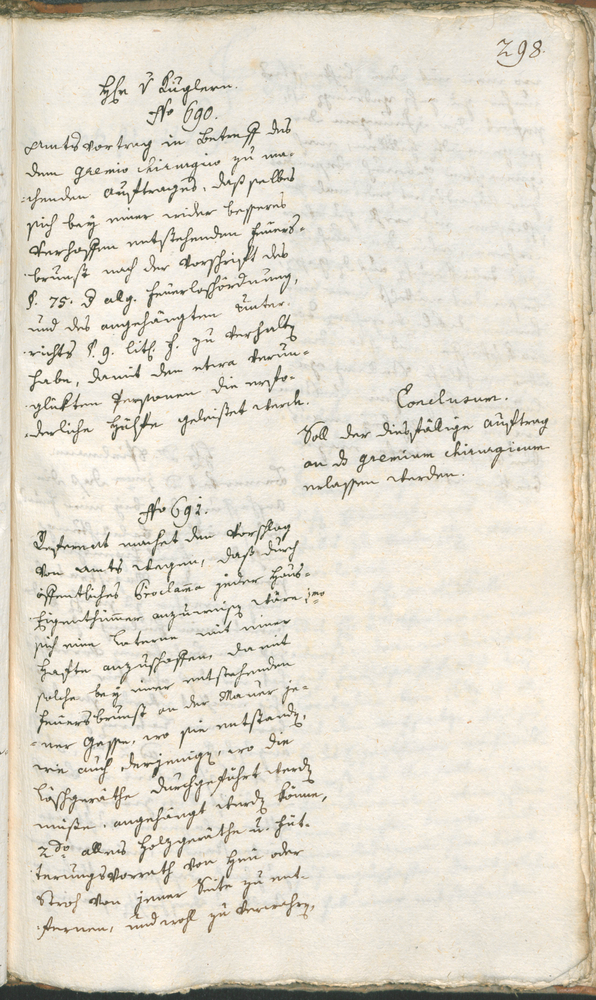 298.
Hr. v Kuglern.
No 690.
Amts Vortrag in Betreff des
dem gremio chirurgico zu ma-
chenden Auftrages, daß selbes
sich bey einer wider besseres
Verhoffen entstehenden Feuers-
brunst nach der Vorschrift des
§. 75. d alg. Feuerlöschordnung,
und des angehängten Unter-
richts §. 9. lit. h. zu verhalten
habe, damit den etwa verun-
glükten Personen die erfo-
derliche Hülfe geleistet werde.
Conclusum.
Soll der diesfällige Auftrag
an das gremium chirurgicum
erlassen werden.
No 691.
Referent machet den Vorschlag
von Amts wegen, daß durch
öffentliches Proclama jeder Haus-
Eigenthümer anzuweisen wäre 1mo
sich eine Laterne mit einer
Hafte anzuschaffen, damit
solche bey einer entstehenden
Feuersbrunst an der Mauer je-
ner Gasse, wo sie entstanden,
wie auch derjenigen, wo die
Löschgeräthe durchgeführt werden
müßen, angehängt werden könne,
2do alles Holzgeräthe u. Füt-
terungsvorrath von Heu oder
Stroh von jener Seite zu ent-
fernen, und wohl zu verwahren,